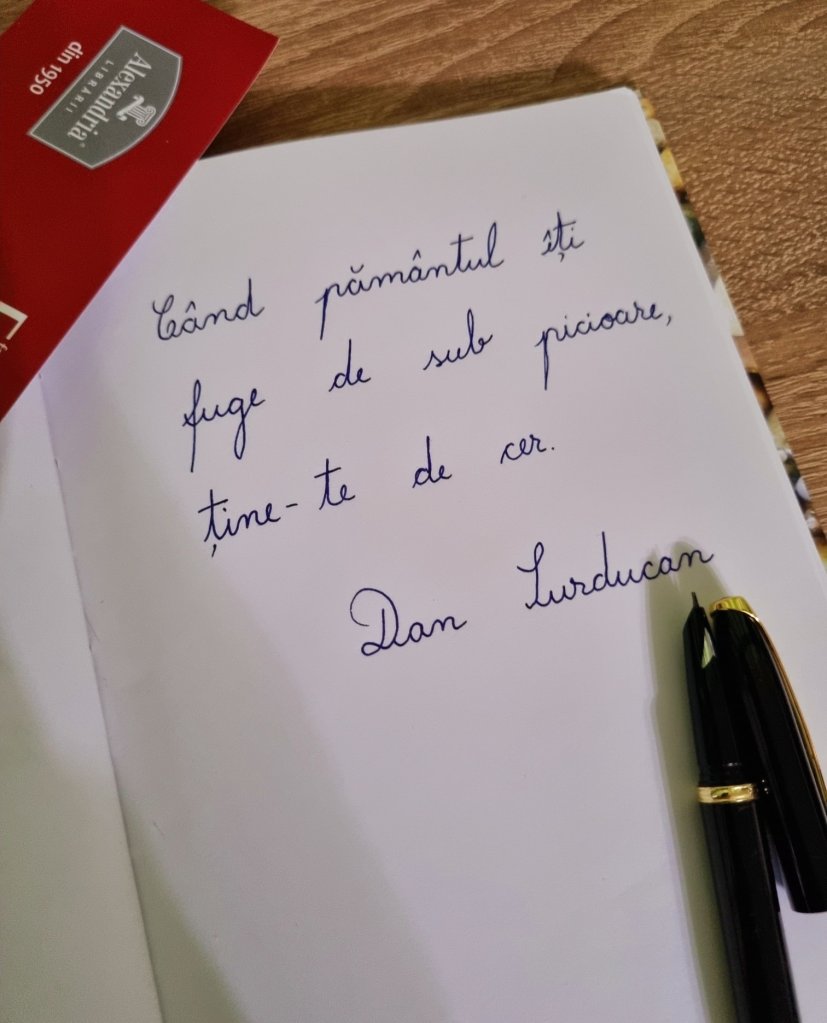 Alexandria
LIBRĂRII
din 1950
Când pământul îți
fuge de sub picioare,
ține-te de cer.
Dan Lurducan